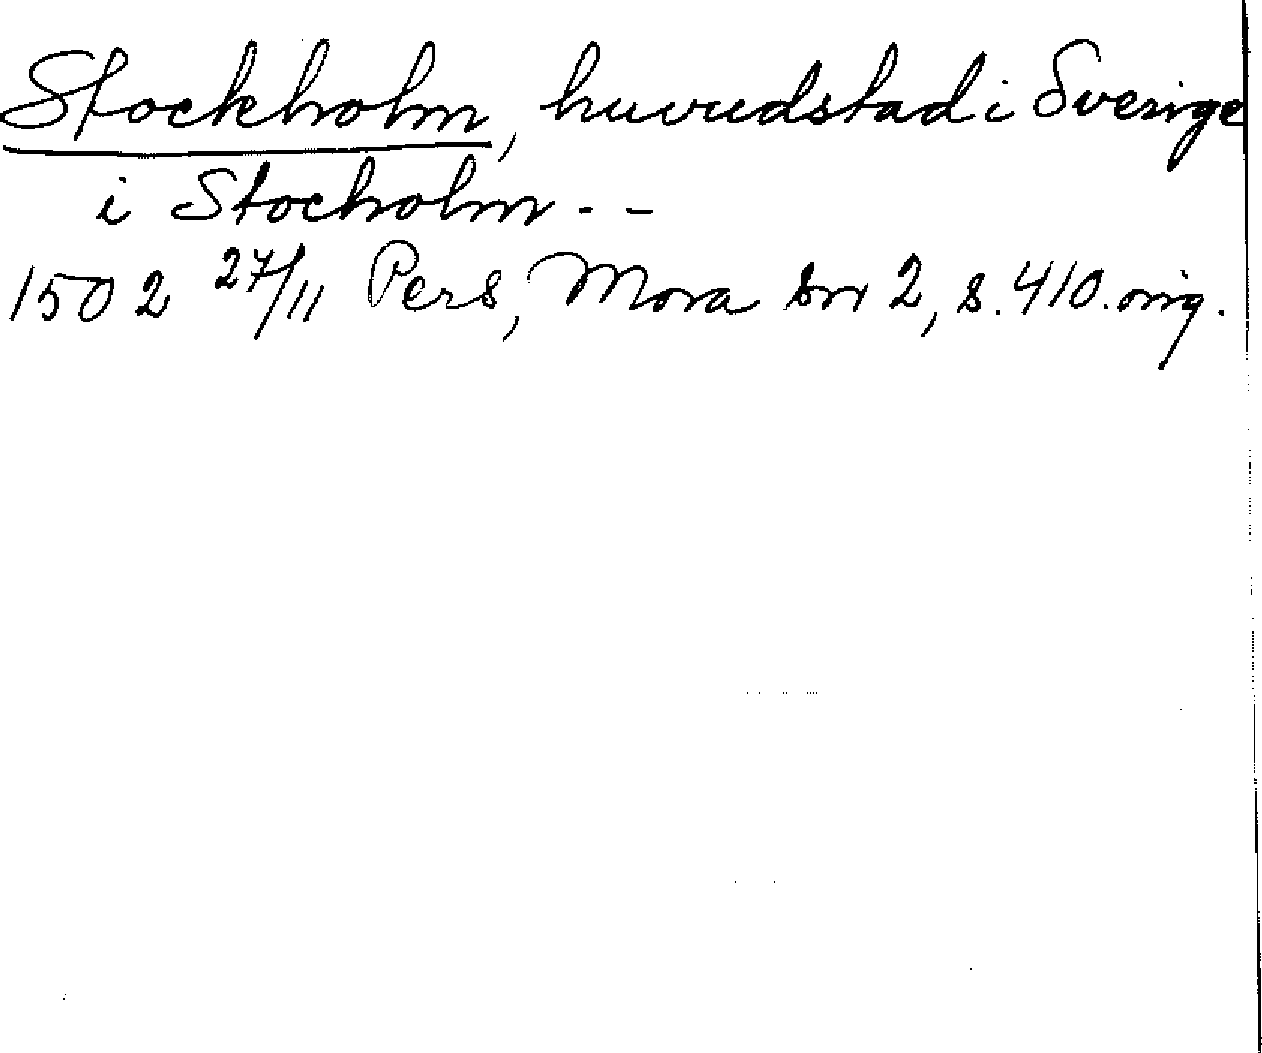 Stockholm, huvudstad i Sverige
i Stocholm - -
1502 27/11 Pers, Mora sn 2, s. 410. orig.